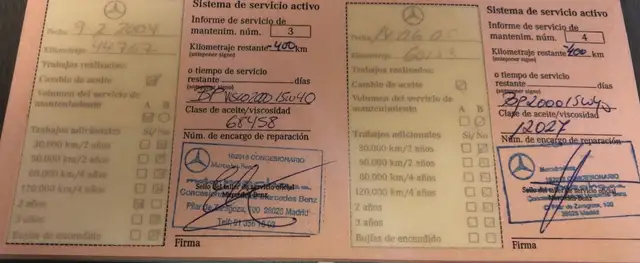 Fecha: 9 2 2004
Kilometraje: 44767
Trabajos realizados:
Cambio de aceite
Volumen del servicio de
mantenimiento A B
Trabajos adicionales Sí/No
30.000 km/2 años
60.000 km/4 años
120.000 km/4 años
2 años
3 años
Bujías de encendido
Sistema de servicio activo
Informe de servicio de
mantenim. núm. 3
Kilometraje restante -400 km
(anteponer signo)
o tiempo de servicio
restante días
(anteponer signo)
BP Visco 2000 15W40
Clase de aceite/viscosidad
68458
Núm. de encargo de reparación
Mercedes-Benz
102918 CONCESIONARIO
Sello del taller de servicio oficial
Mercedes-Benz
Pilar de Zaragoza, 100 28028 Madrid
Firma
Fecha:
Kilometraje:
Trabajos realizados:
Cambio de aceite
Volumen del servicio de
mantenimiento A B
Trabajos adicionales Sí/No
30.000 km/2 años
60.000 km/4 años
120.000 km/4 años
2 años
3 años
Bujías de encendido
Sistema de servicio activo
Informe de servicio de
mantenim. núm. 4
Kilometraje restante km
(anteponer signo)
o tiempo de servicio
restante días
(anteponer signo)
BP 2000 15W40
Clase de aceite/viscosidad
12027
Núm. de encargo de reparación
CONCESIONARIO
Sello del taller de servicio oficial
Pilar de Zaragoza, 100
28028 Madrid
Firma